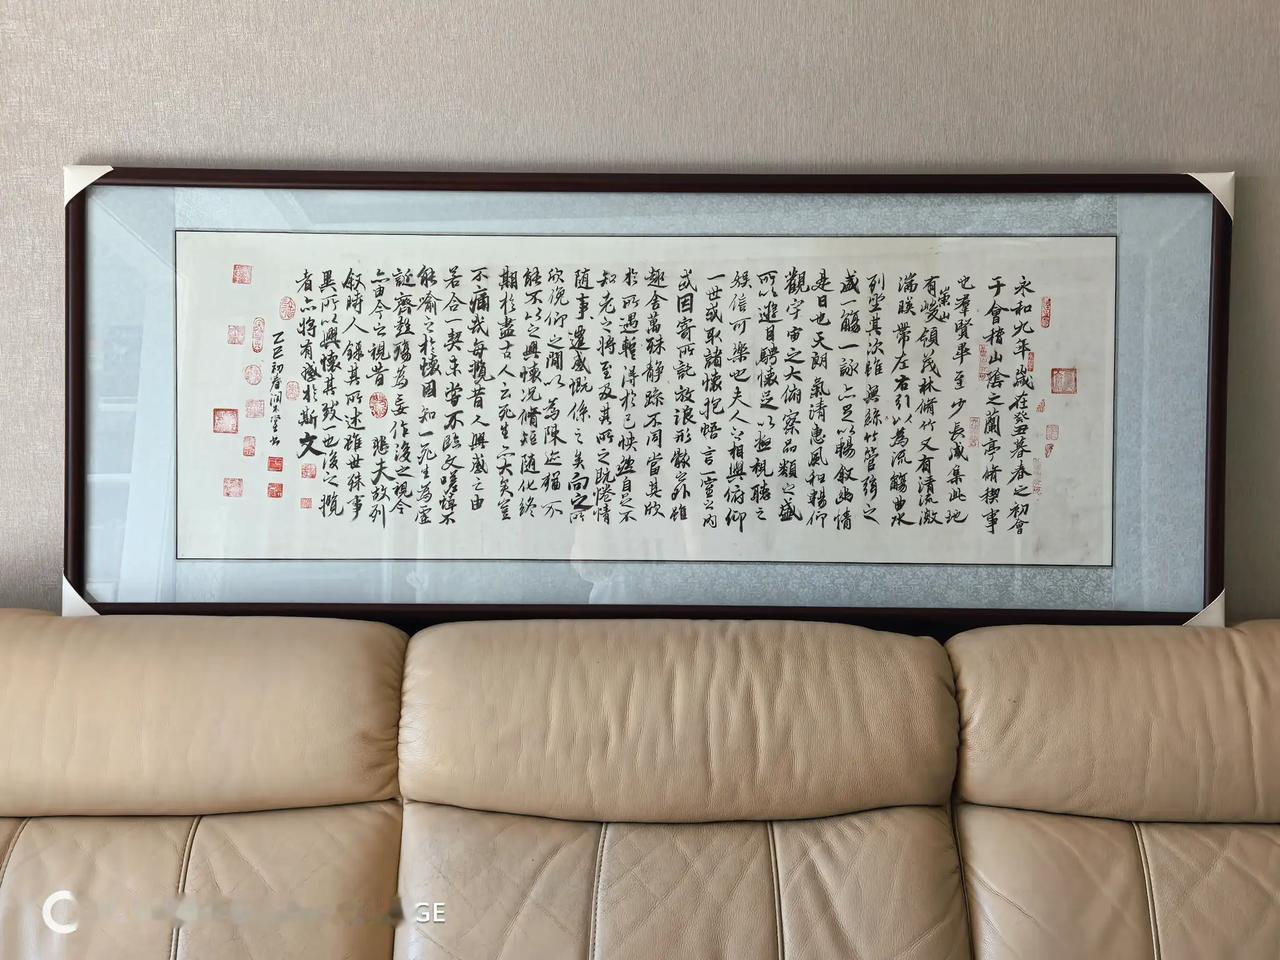 永和九年歲在癸丑暮春之初會
于會稽山陰之蘭亭脩禊事
也羣賢畢至少長咸集此地
有峻領茂林脩竹又有清流激
崇山
湍暎帶左右引以為流觴曲水
列坐其次雖無絲竹管弦之
盛一觴一詠亦足以暢敘幽情
是日也天朗氣清惠風和暢仰
觀宇宙之大俯察品類之盛
所以遊目騁懷足以極視聽之
娛信可樂也夫人之相與俯仰
一世或取諸懷抱悟言一室之內
或因寄所託放浪形骸之外雖
趣舍萬殊靜躁不同當其欣
於所遇暫得於己怏然自足不
知老之將至及其所之既惓情
隨事遷感慨係之矣向之所
欣俛仰之間以為陳迹猶不
能不以之興懷況脩短隨化終
期於盡古人云死生亦大矣豈
不痛哉每攬昔人興感之由
若合一契未嘗不臨文嗟悼不
能喻之於懷固知一死生為虛
誕齊彭殤為妄作後之視今
亦由今之視昔 悲夫故列
敘時人錄其所述雖世殊事
異所以興懷其致一也後之攬
者亦將有感於斯文
乙巳初春潤
GE